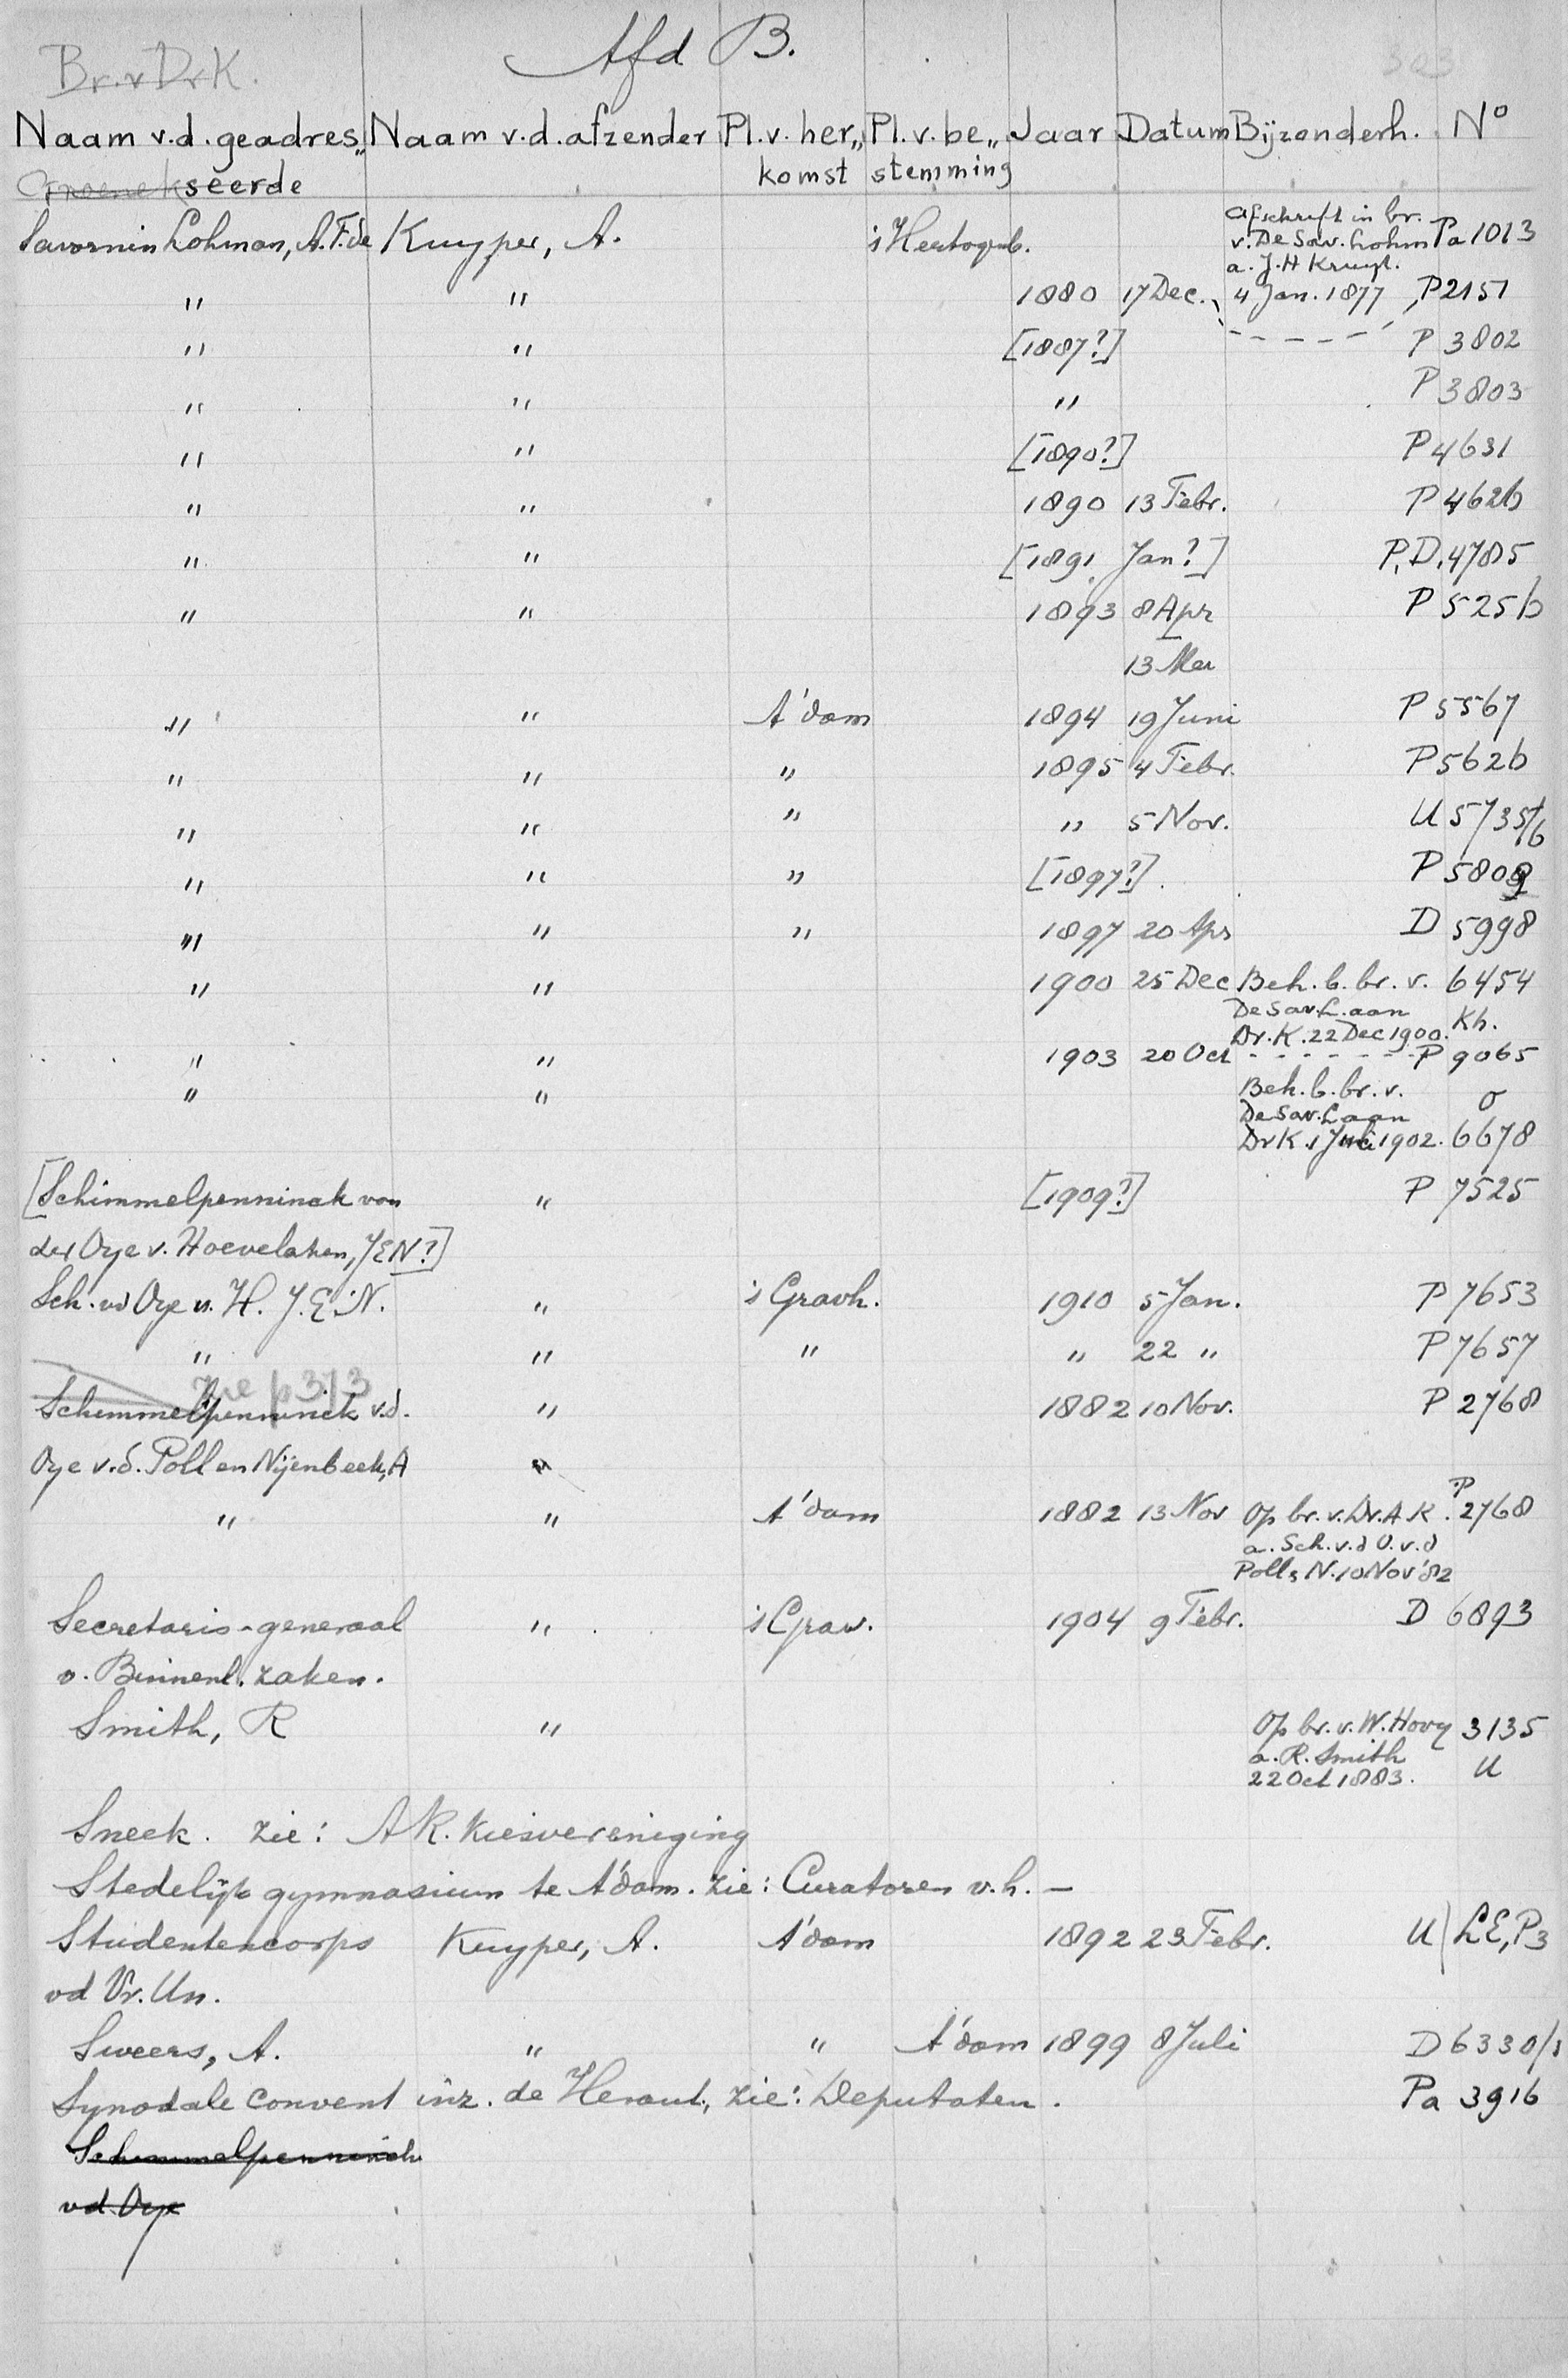 Afd B.
Br. v Dr K. 303
Naam v.d. geadres„ Naam v.d. afzender Pl. v. her„ Pl. v. be„ Jaar Datum Bijzonderh. No
seerde komst stemming
Savornin Lohman, A.F. de Kuyper, A. 's Hertogenb. Afschrift in br. Pa 1013
v. De Sav. Lohm
a. J.H Kruyt.
" " 1880 17 Dec. 4 Jan. 1877 P 2151
" " [1887?] - - - - - P 3802
" " " P 3803
" " [1890?] P 4631
" " 1890 13 Febr. P 4626
" " [1891 Jan?] P, D, 4785
" " 1893 8 Apr P 5256
13 Mei
" " A'dam 1894 19 Juni P 5567
" " " 1895 4 Febr. P 5626
" " " " 5 Nov. U 5735/6
" " " [1897?] P 5809
" " " 1897 20 Apr D 5998
" " 1900 25 Dec Beh. b. br. v. 6454
De Sav. L. aan Kh.
Dr. K. 22 Dec 1900.
" " 1903 20 Oct - - - - - - P 9065
" " Beh. b. br. v. o
De Sav. L aan
Dr K. 1 Juli 1902. 6678
[Schimmelpenninck van " [1909?] P 7525
der Oye v. Hoevelaken, J E N?]
Sch. vd Oye v. H. J.E.N. " 's Gravh. 1910 5 Jan. P 7653
" " " " 22 " P 7657
Zie p 313
Schimmelpenninck v.d. " 1882 10 Nov. P 2768
Oye v.d. Poll en Nijenbeek, A "
" " A'dam 1882 13 Nov Op br. v. Dr. A K. P 2768
a. Sch. v.d O. v.d
Poll s N. 10 Nov '82
Secretaris-generaal " 's Grav. 1904 9 Febr. D 6893
v. Binnenl. zaken.
Smith, R " Op br. v. W. Hovy 3135
a. R. Smith U
22 Oct 1883.
Sneek. zie: A R. Kiesvereniging
Stedelijk gymnasium te A'dam. zie: Curatoren v.h. —
Studentencorps Kuyper, A. A'dam 1892 23 Febr. U LE, P3
vd Vr. Un.
Sweers, A. " " A'dam 1899 8 Juli D 6330/1
Synodale Convent inz. de Heraut, zie: Deputaten. Pa 3916
Schimmelpenninck
vd Oye